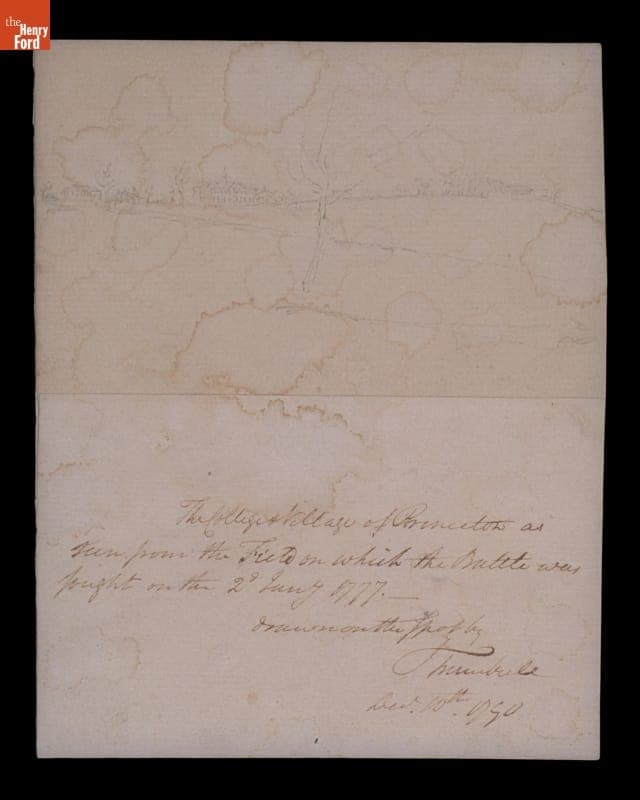 the
Henry
Ford
The College & Village of Princeton as
seen from the Field on which the Battle was
fought on the 2d Jany 1777.—
drawn on the Spot by
J Trumbull
Decr. 10th. 1790